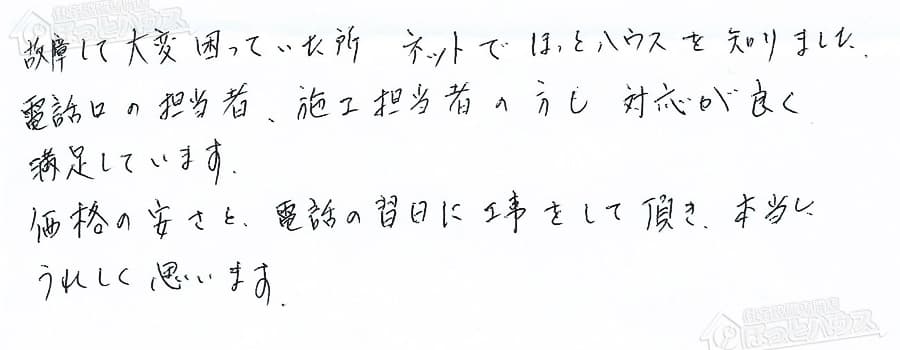 故障して大変困っていた所 ネットでほっとハウスを知りました.
電話口の担当者、施工担当者の方も対応が良く
満足しています.
価格の安さと、電話の習日に工事をして頂き、本当に
うれしく思います.
住宅設備専門店
ほっとハウス